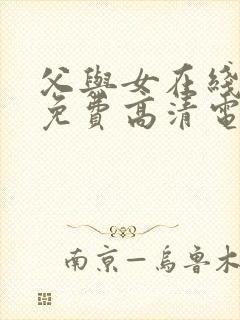 父與女在綫
免費高清電
南京—烏鲁木